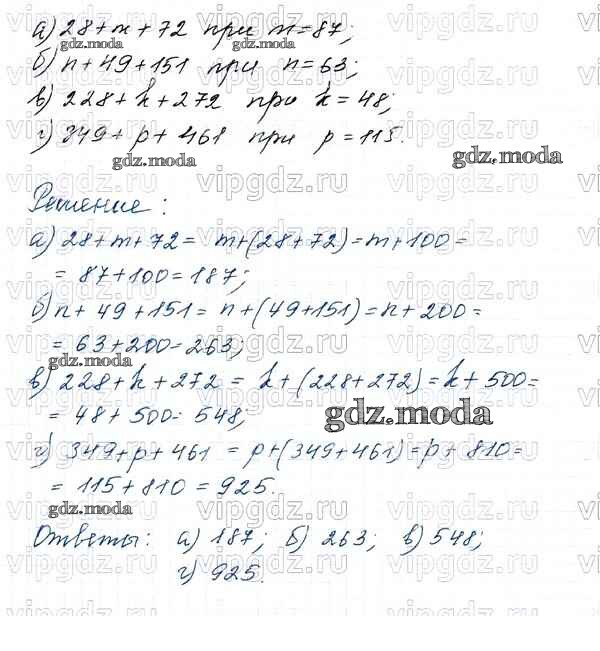 а) 28+m+72 при m=87;
б) n+49+151 при n=63;
в) 228+k+272 при k=48;
г) 349+p+461 при p=115.
Решение:
а) 28+m+72= m+(28+72)=m+100=
= 87+100=187;
б) n+49+151= n+(49+151)=n+200=
= 63+200=263;
в) 228+k+272 = k+(228+272)=k+500=
= 48+500=548;
г) 349+p+461 = p+(349+461)=p+810=
= 115+810=925.
Ответы: а) 187; б) 263; в) 548;
г) 925.
vipgdz.ru
gdz.moda